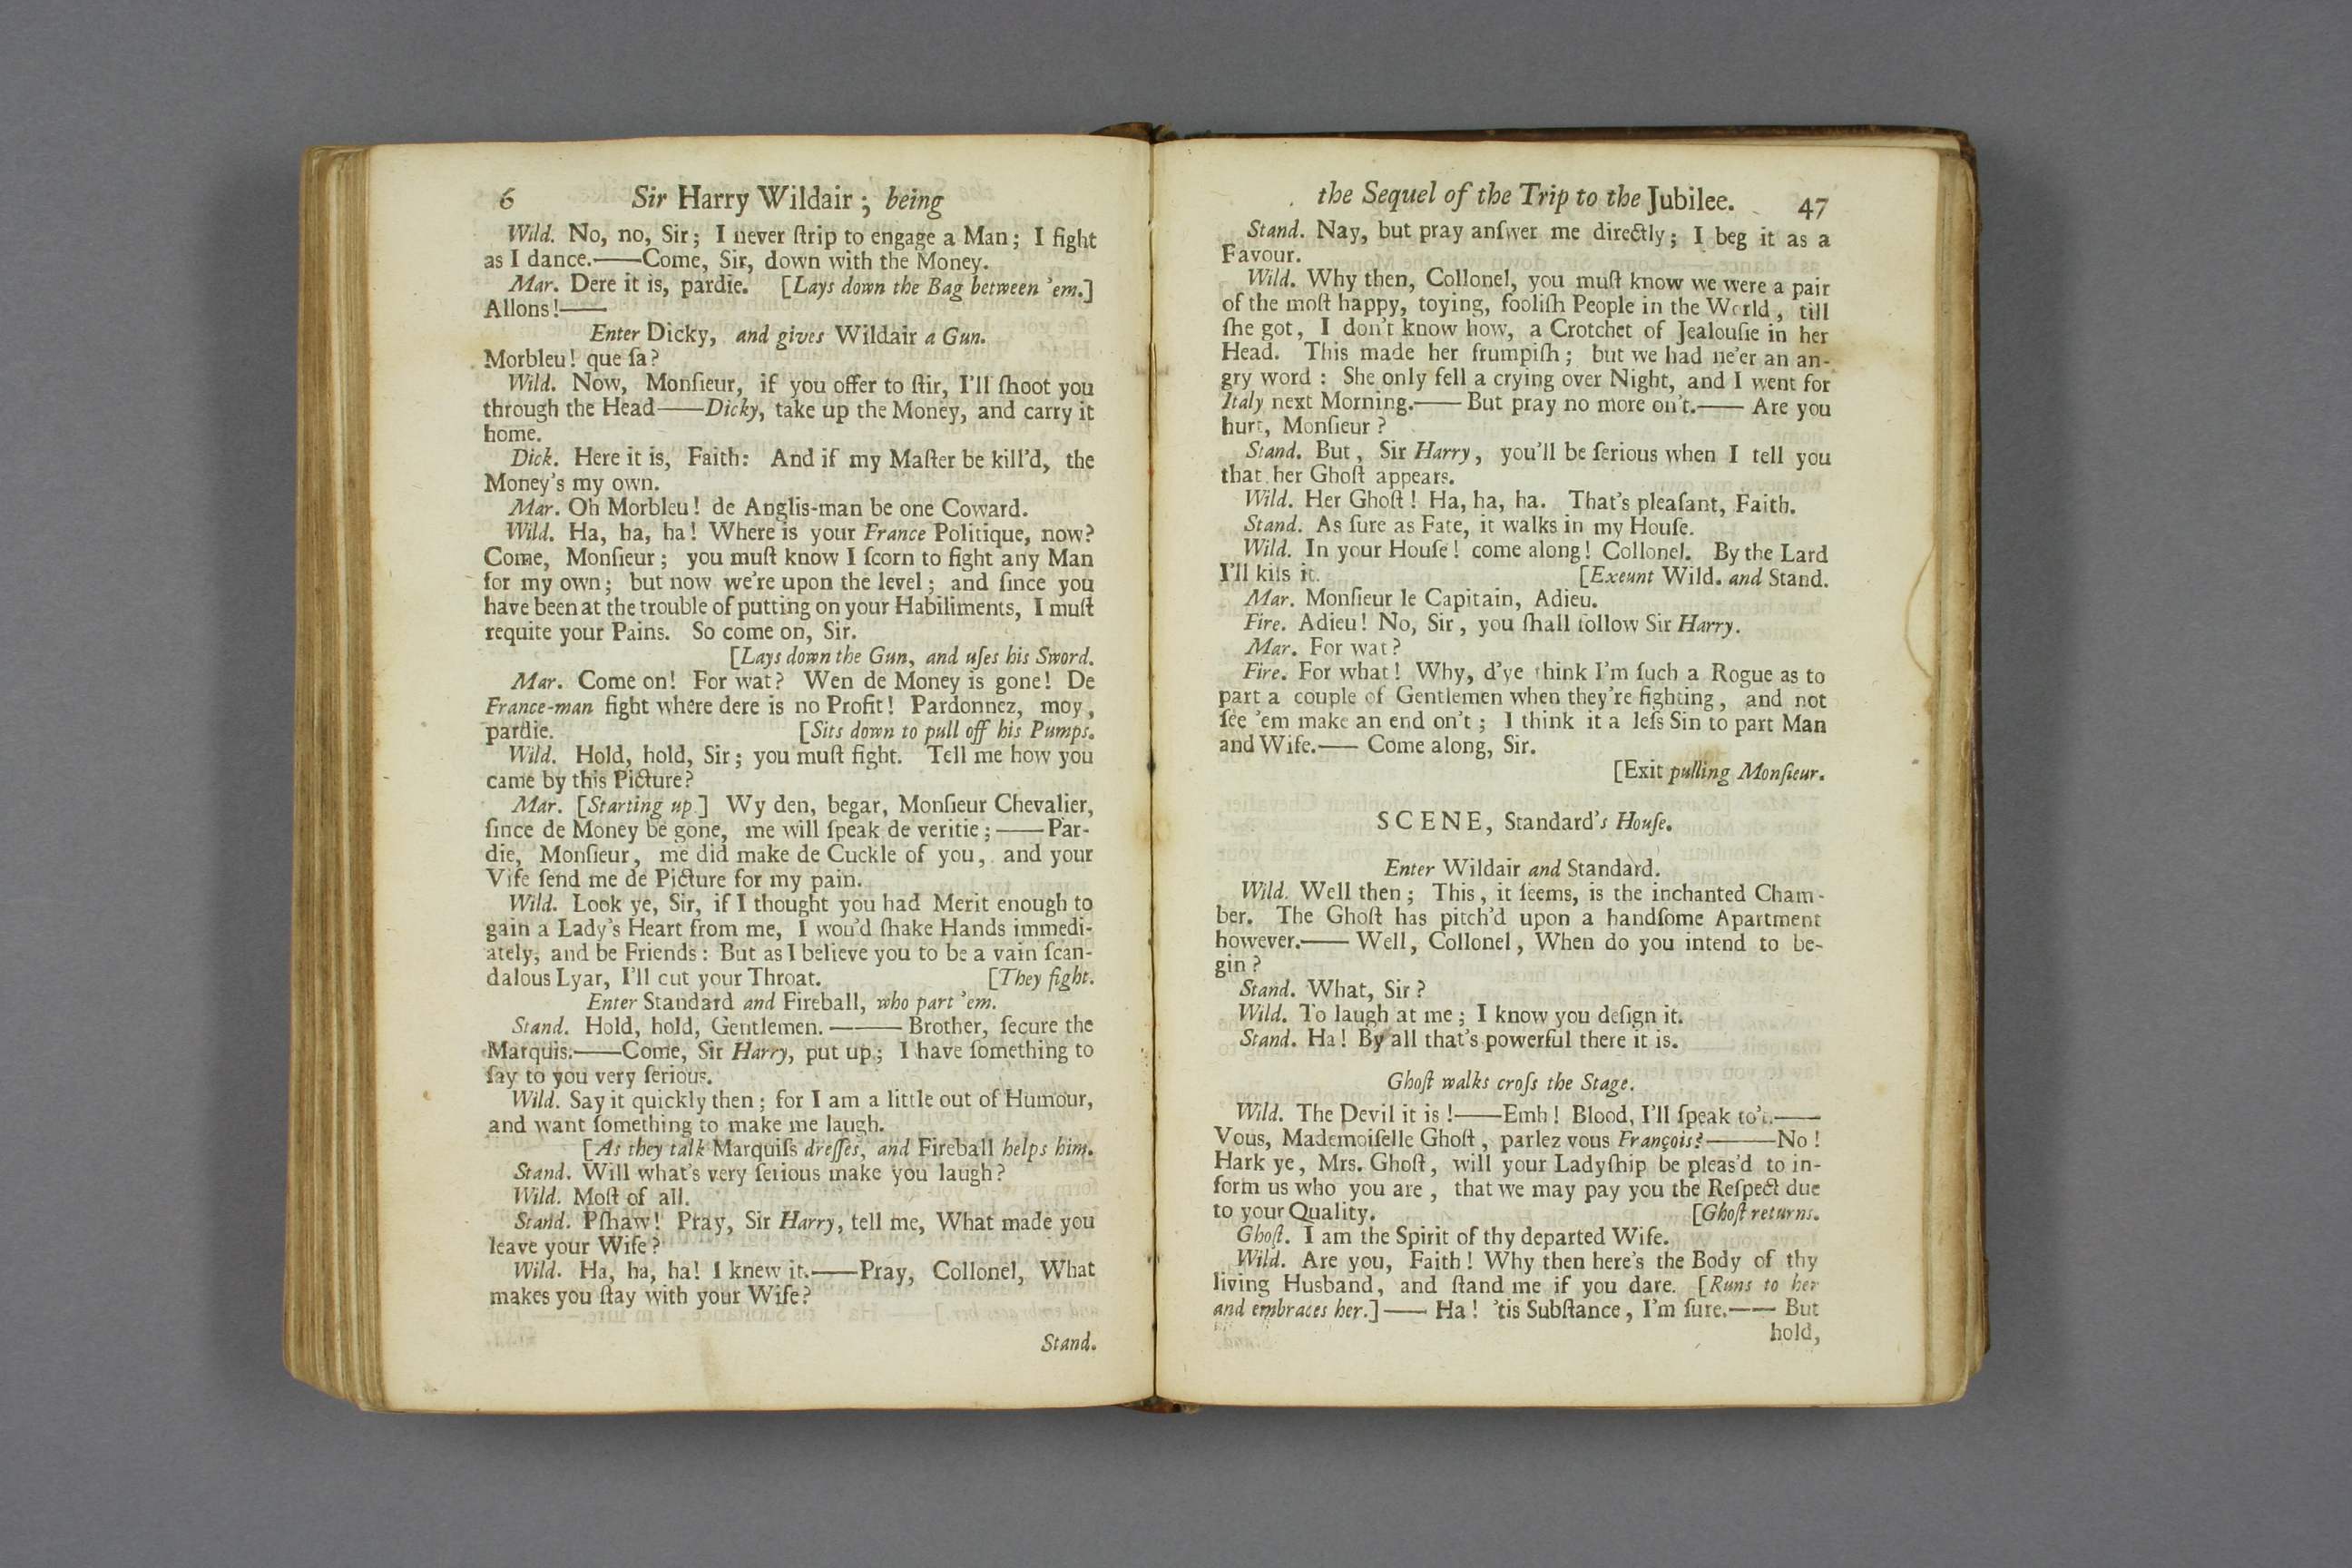 6 Sir Harry Wildair; being
Wild. No, no, Sir; I never ſtrip to engage a Man; I fight
as I dance.——Come, Sir, down with the Money.
Mar. Dere it is, pardie. [Lays down the Bag between 'em.]
Allons!——
Enter Dicky, and gives Wildair a Gun.
Morbleu! que ſa?
Wild. Now, Monſieur, if you offer to ſtir, I'll ſhoot you
through the Head——Dicky, take up the Money, and carry it
home.
Dick. Here it is, Faith: And if my Maſter be kill'd, the
Money's my own.
Mar. Oh Morbleu! de Anglis-man be one Coward.
Wild. Ha, ha, ha! Where is your France Politique, now?
Come, Monſieur; you muſt know I ſcorn to fight any Man
for my own; but now we're upon the level; and ſince you
have been at the trouble of putting on your Habiliments, I muſt
requite your Pains. So come on, Sir.
[Lays down the Gun, and uſes his Sword.
Mar. Come on! For wat? Wen de Money is gone! De
France-man fight where dere is no Profit! Pardonnez, moy,
pardie. [Sits down to pull off his Pumps.
Wild. Hold, hold, Sir; you muſt fight. Tell me how you
came by this Picture?
Mar. [Starting up.] Wy den, begar, Monſieur Chevalier,
ſince de Money be gone, me will ſpeak de veritie;——Par-
die, Monſieur, me did make de Cuckle of you, and your
Vife ſend me de Picture for my pain.
Wild. Look ye, Sir, if I thought you had Merit enough to
gain a Lady's Heart from me, I wou'd ſhake Hands immedi-
ately, and be Friends: But as I believe you to be a vain ſcan-
dalous Lyar, I'll cut your Throat. [They fight.
Enter Standard and Fireball, who part 'em.
Stand. Hold, hold, Gentlemen.——Brother, ſecure the
Marquis.——Come, Sir Harry, put up; I have ſomething to
ſay to you very ſerious.
Wild. Say it quickly then; for I am a little out of Humour,
and want ſomething to make me laugh.
[As they talk Marquiſs dreſſes, and Fireball helps him.
Stand. Will what's very ſerious make you laugh?
Wild. Moſt of all.
Stand. Pſhaw! Pray, Sir Harry, tell me, What made you
leave your Wife?
Wild. Ha, ha, ha! I knew it.——Pray, Collonel, What
makes you ſtay with your Wife?
Stand.
the Sequel of the Trip to the Jubilee. 47
Stand. Nay, but pray anſwer me directly; I beg it as a
Favour.
Wild. Why then, Collonel, you muſt know we were a pair
of the moſt happy, toying, fooliſh People in the World, till
ſhe got, I don't know how, a Crotchet of Jealouſie in her
Head. This made her frumpiſh; but we had ne'er an an-
gry word: She only fell a crying over Night, and I went for
Italy next Morning.——But pray no more on't.——Are you
hurt, Monſieur?
Stand. But, Sir Harry, you'll be ſerious when I tell you
that her Ghoſt appears.
Wild. Her Ghoſt! Ha, ha, ha. That's pleaſant, Faith.
Stand. As ſure as Fate, it walks in my Houſe.
Wild. In your Houſe! come along! Collonel. By the Lard
I'll kiſs it. [Exeunt Wild. and Stand.
Mar. Monſieur le Capitain, Adieu.
Fire. Adieu! No, Sir, you ſhall follow Sir Harry.
Mar. For wat?
Fire. For what! Why, d'ye think I'm ſuch a Rogue as to
part a couple of Gentlemen when they're fighting, and not
ſee 'em make an end on't; I think it a leſs Sin to part Man
and Wife.——Come along, Sir.
[Exit pulling Monſieur.
SCENE, Standard's Houſe.
Enter Wildair and Standard.
Wild. Well then; This, it ſeems, is the inchanted Cham-
ber. The Ghoſt has pitch'd upon a handſome Apartment
however.——Well, Collonel, When do you intend to be-
gin?
Stand. What, Sir?
Wild. To laugh at me; I know you deſign it.
Stand. Ha! By all that's powerful there it is.
Ghoſt walks croſs the Stage.
Wild. The Devil it is!——Emh! Blood, I'll ſpeak to't.——
Vous, Mademoiſelle Ghoſt, parlez vous François?——No!
Hark ye, Mrs. Ghoſt, will your Ladyſhip be pleas'd to in-
form us who you are, that we may pay you the Reſpect due
to your Quality. [Ghoſt returns.
Ghoſt. I am the Spirit of thy departed Wife.
Wild. Are you, Faith! Why then here's the Body of thy
living Husband, and ſtand me if you dare. [Runs to her
and embraces her.]——Ha! 'tis Subſtance, I'm ſure.——But
hold,